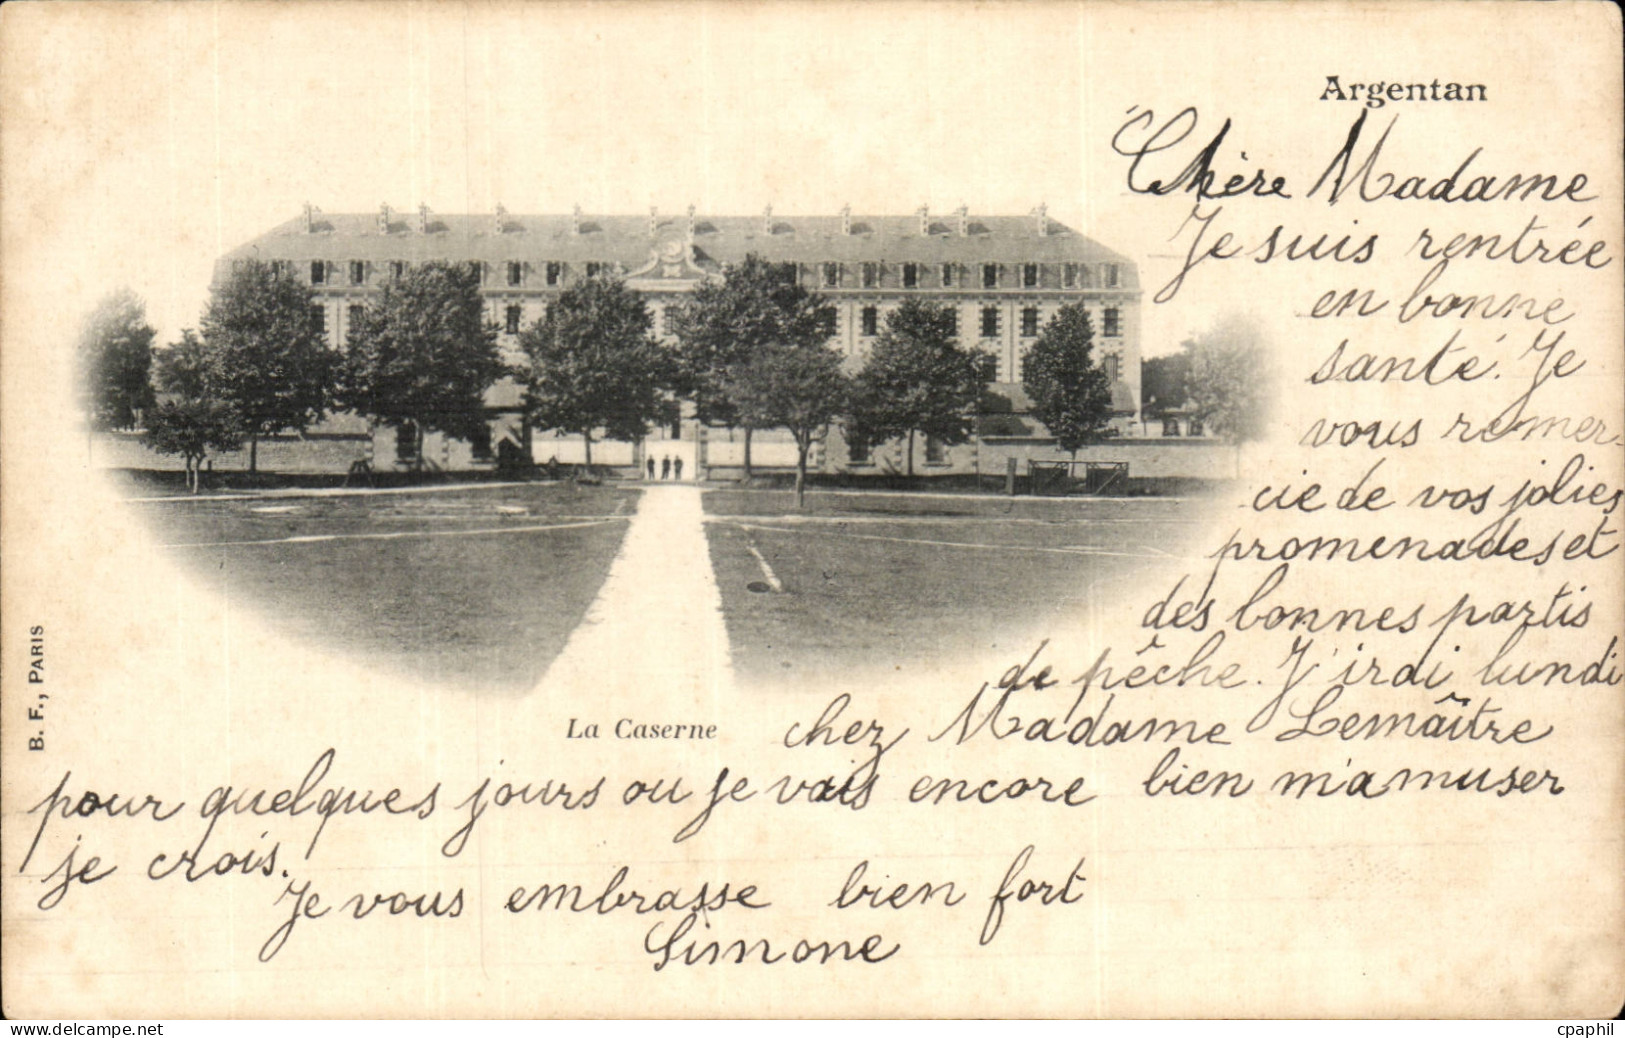 Argentan
Chère Madame
Je suis rentrée
en bonne
santé. Je
vous remer-
cie de vos jolies
promenades et
des bonnes partis
de pêche. J'irai lundi
La Caserne
chez Madame Lemaître
pour quelques jours ou je vais encore bien m'amuser
je crois.
Je vous embrasse bien fort
Simone
B. F., PARIS
www.delcampe.net
cpaphil